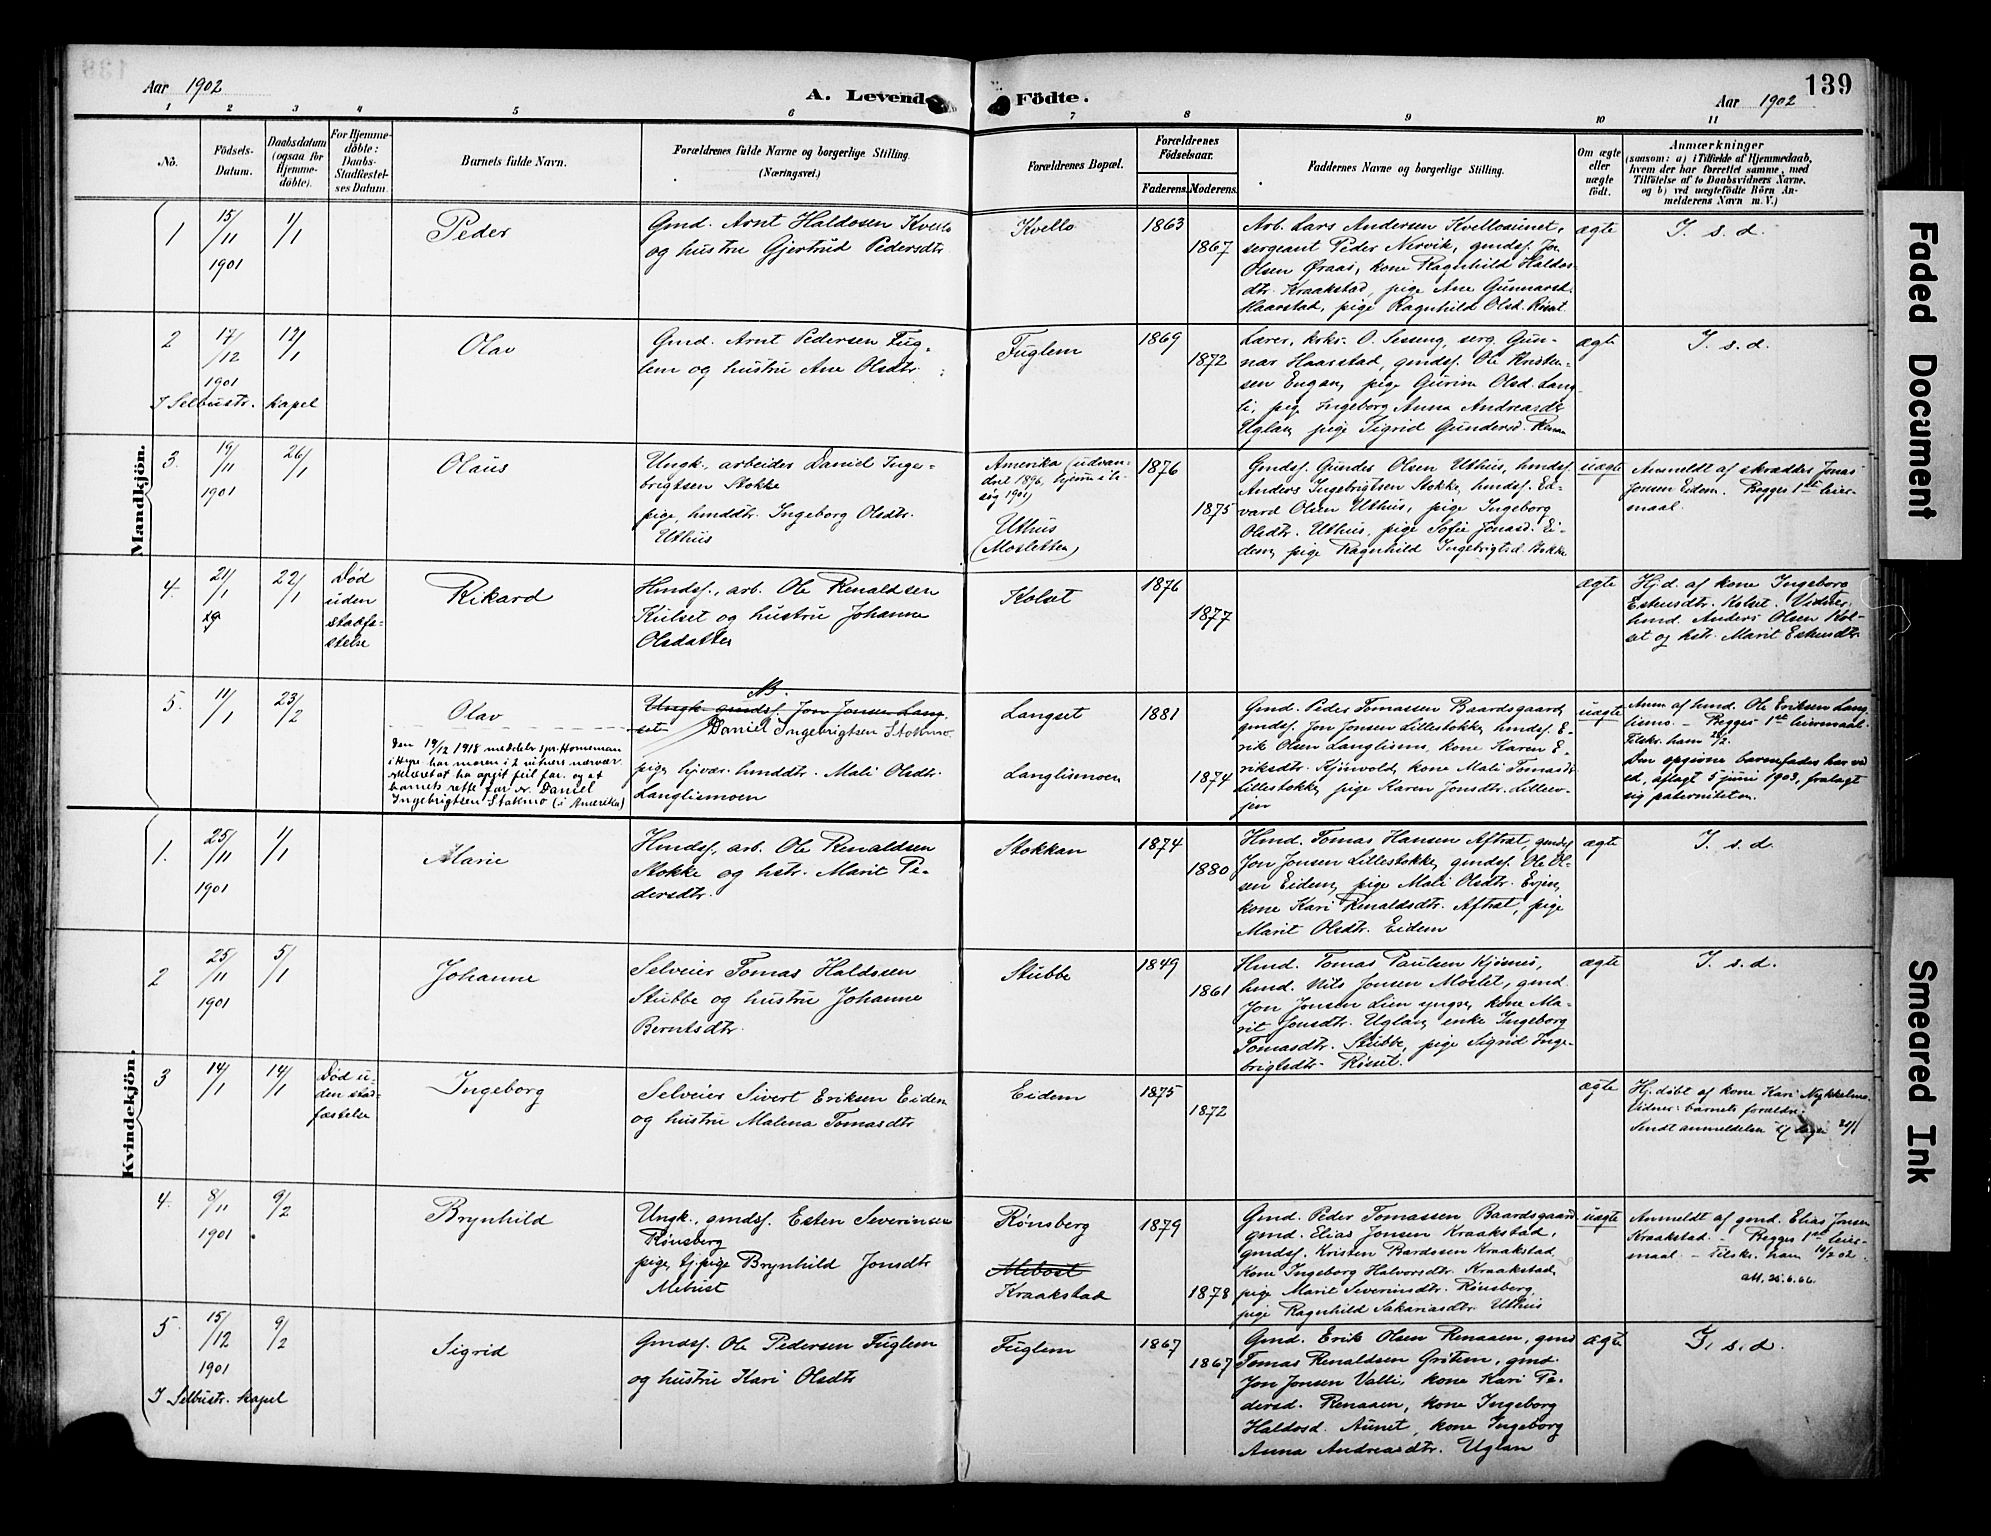 Aar 1902
A. Levend Födte.
139
Aar 1902
1 2 3 4 5 6 7 8 9 10 11
No.
Födsels-
Datum.
Daabsdatum
(ogsaa for
Hjemme-
döbte).
For Hjemme-
döbte:
Daabs-
Stadfæstel-
ses Datum.
Barnets fulde Navn.
Forældrenes fulde Navne og borgerlige Stilling.
(Næringsvei.)
Forældrenes Bopæl.
Forældrenes
Födselsaar.
Faderens. Moderens.
Faddernes Navne og borgerlige Stilling.
Om ægte
eller
uægte
födt.
Anmærkninger
(saasom: a) i Tilfælde af Hjemmedaab,
hvem der har forrettet samme, med
Tilföielse af to Daabsvidners Navne,
og b) ved uægtefödte Börn An-
melderens Navn m. V.)
Mandkjön.
1
15/11
1901
1/1
Peder
Gmd. Arnt Haldosen Kvello
og hustru Gjertrud Pedersdtr.
Kvello
1863
1867
Arb. Lars Andersen Kvelloaunet,
sergeant Peder Nervik, gmdsf. Jon
Olsen Øraas, kone Ragnhild Haldos-
dtr. Kraakstad, pige Ane Gunnarsd.
Haarstad, pige Ragnhild Olsd. Røset
ægte
I. s. d.
2
17/12
1901
12/1
I Selbustr. kapel
Olav
Gmd. Arnt Pedersen Fug-
lem og hustru Ane Olsdtr.
Fuglem
1869
1872
Lærer, krkr. O. Sesseng, serg. Gun-
nar Haarstad, gmdsf. Ole Kristen-
sen Engan, pige Guruna Olsd. Lang-
li, pige Ingeborg Anna Andreasdtr.
Uglan, pige Sigrid Gundersd.
ægte
I. s. d.
3.
19/11
1901
26/1
Olaus
Ungk., arbeider Daniel Inge-
brigtsen Stokke
pige, hmddtr. Ingeborg Olsdtr.
Uthus
Amerika (udvan-
dret 1896, hjemme i be-
søg 1901)
Uthus
(Mosletten)
1876
1875
Gmdsf. Gunder Olsen Uthus, hmdsf.
Anders Ingebrigtsen Stokke, hmdsf. Ed-
vard Olsen Uthus, pige Ingeborg
Olsdtr. Uthus, pige Sofie Jonasd. Ei-
dem, pige Ragnhild Ingebrigtsd. Stokke
uægte
Anmeldt af skrædder Jonas
Jonsen Eidem. Begges 1ste leier-
maal.
4.
21/1
22/1
Død
uden
stadfæ-
stelse
Rikard
Hmdsf., arb. Ole Renaldsen
Kulset og hustru Johanne
Olsdatter
Kolset
1876
1877
ægte
Hj.d. af kone Ingeborg
Estensdtr. Kolset. Vidner:
hmd. Anders Olsen Kol-
set og hstr. Marit Estensdtr.
5.
11/1
23/2
Olav
Den 19/12 1918 meddeler spr. Horneman
i Hype har moren i 2 vitners nærvær
erklæret at ha opgit feil far. og at
barnets rette far er Daniel
Ingebrigtsen Stokmo (i Amerika)
NB.
Ungk. gmdsf. Jon Jonsen Lang-
set Daniel Ingebrigtsen Stokmo
pige, hjvær. hmddtr. Mali Olsdtr.
Langlismoen
Langset
Langlismoen
1881
1874
Gmd. Peder Tomassen Baardsgaard,
gmdsf. Jon Jonsen Lillestokke, gmdsf. E-
rik Olsen Langlismo, kone Karen E-
riksdtr. Kjønvold, kone Mali Tomasdtr.
Lillestokke, pige Karen Jonsdtr. Lilleev-
jen
uægte
Anm. af hmd. Ole Eriksen Lang-
lismo. – Begges 1ste leiermaal.
Tilskr. ham 28/2.
Den opgivne barnefader har ved
ed, aflagt 5 juni 1903, fralagt
sig paterniteten.
Kvindekjön.
1.
25/11
1901
1/1
Marie
Hmdsf., arb. Ole Renaldsen
Stokke og hstr. Marit Pe-
dersdtr.
Stokkan
1874
1880
Hmd. Tomas Hansen Aftret, gmdsf.
Jon Jonsen Lillestokke, gmdsf. Ole Ol-
sen Eidem, pige Mali Olsdtr. Evjen,
kone Kari Renaldsdtr. Aftret, pige
Marit Olsdtr. Eidem
ægte
I. s. d.
2
25/11
1901
5/1
Johanne
Selveier Tomas Haldosen
Stubbe og hustru Johanne
Berntsdtr.
Stubbe
1849
1861
Hmd. Tomas Paulsen Kjøsnes,
hmd. Nils Jonsen Moslet, gmd.
Jon Jonsen Lien yngre, kone Ma-
rit Jonsdtr. Uglan, enke Ingeborg
Tomasdtr. Stubbe, pige Sigrid Inge-
brigtsdtr. Røset.
ægte
I. s. d.
3
14/1
14/1
Død u-
den stad-
fæstelse
Ingeborg
Selveier Sivert Eriksen Eidem
og hustru Malena Tomasdtr.
Eidem
1875
1872
ægte
Hj.døbt af kone Kari Nykkelmo.
Vidner: barnets forældre.
Sendt anmeldelse til
4.
8/11
1901
9/2
Brynhild
Ungk., gmdsf. Esten Severinsen
Rønsberg
pige, tj.pige Brynhild Jonsdtr.
Mebust
Rønsberg
Mebost
Kraakstad
1879
1878
Gmd. Peder Tomassen Baardsgaard
gmd. Elias Jonsen Kraakstad,
gmdsf. Kristen Bardosen Kraakstad
kone Ingeborg Halvorsdtr. Kraakstad,
pige Marit Severinsdtr. Rønsberg,
pige Ragnhild Sakariasdtr. Uthus
uægte
Anmeldt af gmd. Elias Jonsen
Kraakstad. – Begges 1ste leier-
maal. – Tilskr. ham 14/2 02.
att. 25.6.66.
5
15/12
1901
9/2
I Selbustr. kapel
Sigrid
Gmdsf. Ole Pedersen Fuglem
og hustru Kari Olsdtr.
Fuglem
1867
1867
Gmd. Erik Olsen Renaaen, gmd.
Tomas Renaldsen Grøtem, gmd.
Jon Jonsen Valli, kone Kari Pe-
dersd. Renaaen, kone Ingeborg
Haldosd. Aunet, kone Ingeborg
Anna Andreasdtr. Uglan
ægte
I. s. d.
Faded Document
Smeared Ink